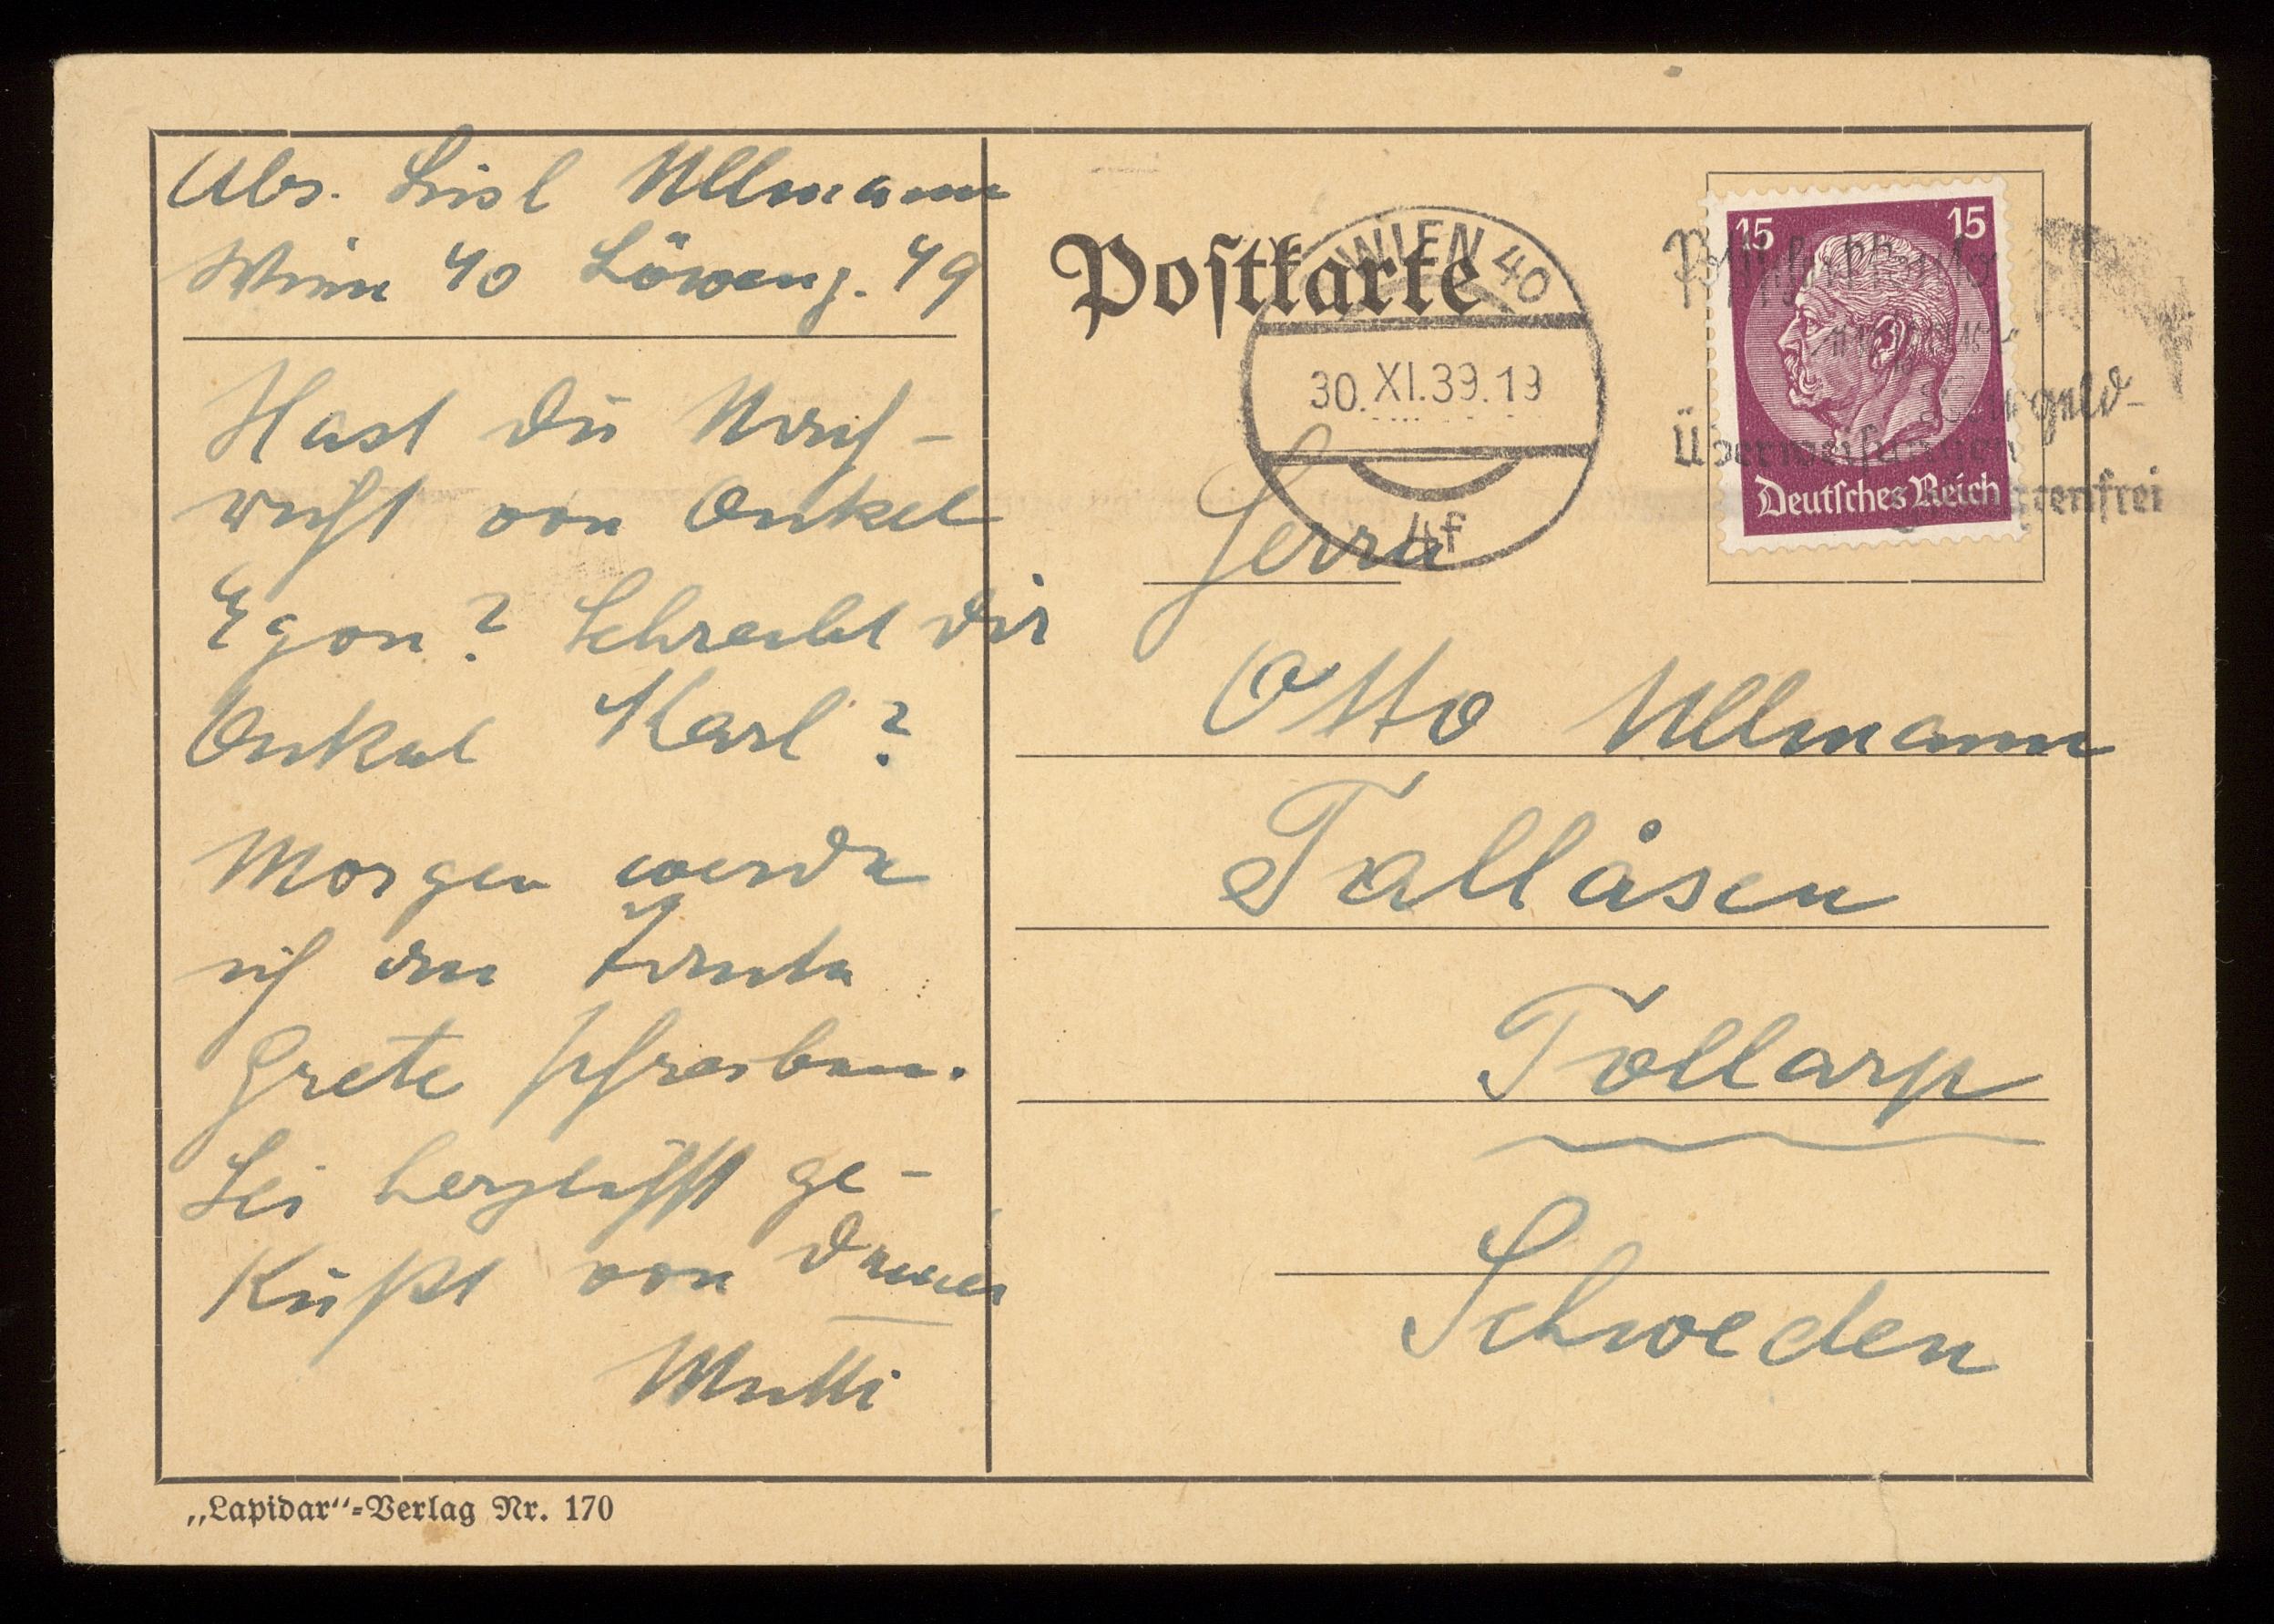 Abs. Lisl Ullmann
Wien 40 Löweng. 49
Hast Du Nach-
richt von Onkel
Egon? Schreibt Dir
Onkel Karl?
Morgen werde
ich an Tante
Grete schreiben.
Sei herzlichst ge-
küßt von Deiner
Mutti
„Lapidar“-Verlag Nr. 170
Postkarte
WIEN 40
30.XI.39.19
4f
15 15
Deutsches Reich
geld-
Überweisungen
Herrn
Otto Ullmann
Tallåsen
Tollarp
Schweden